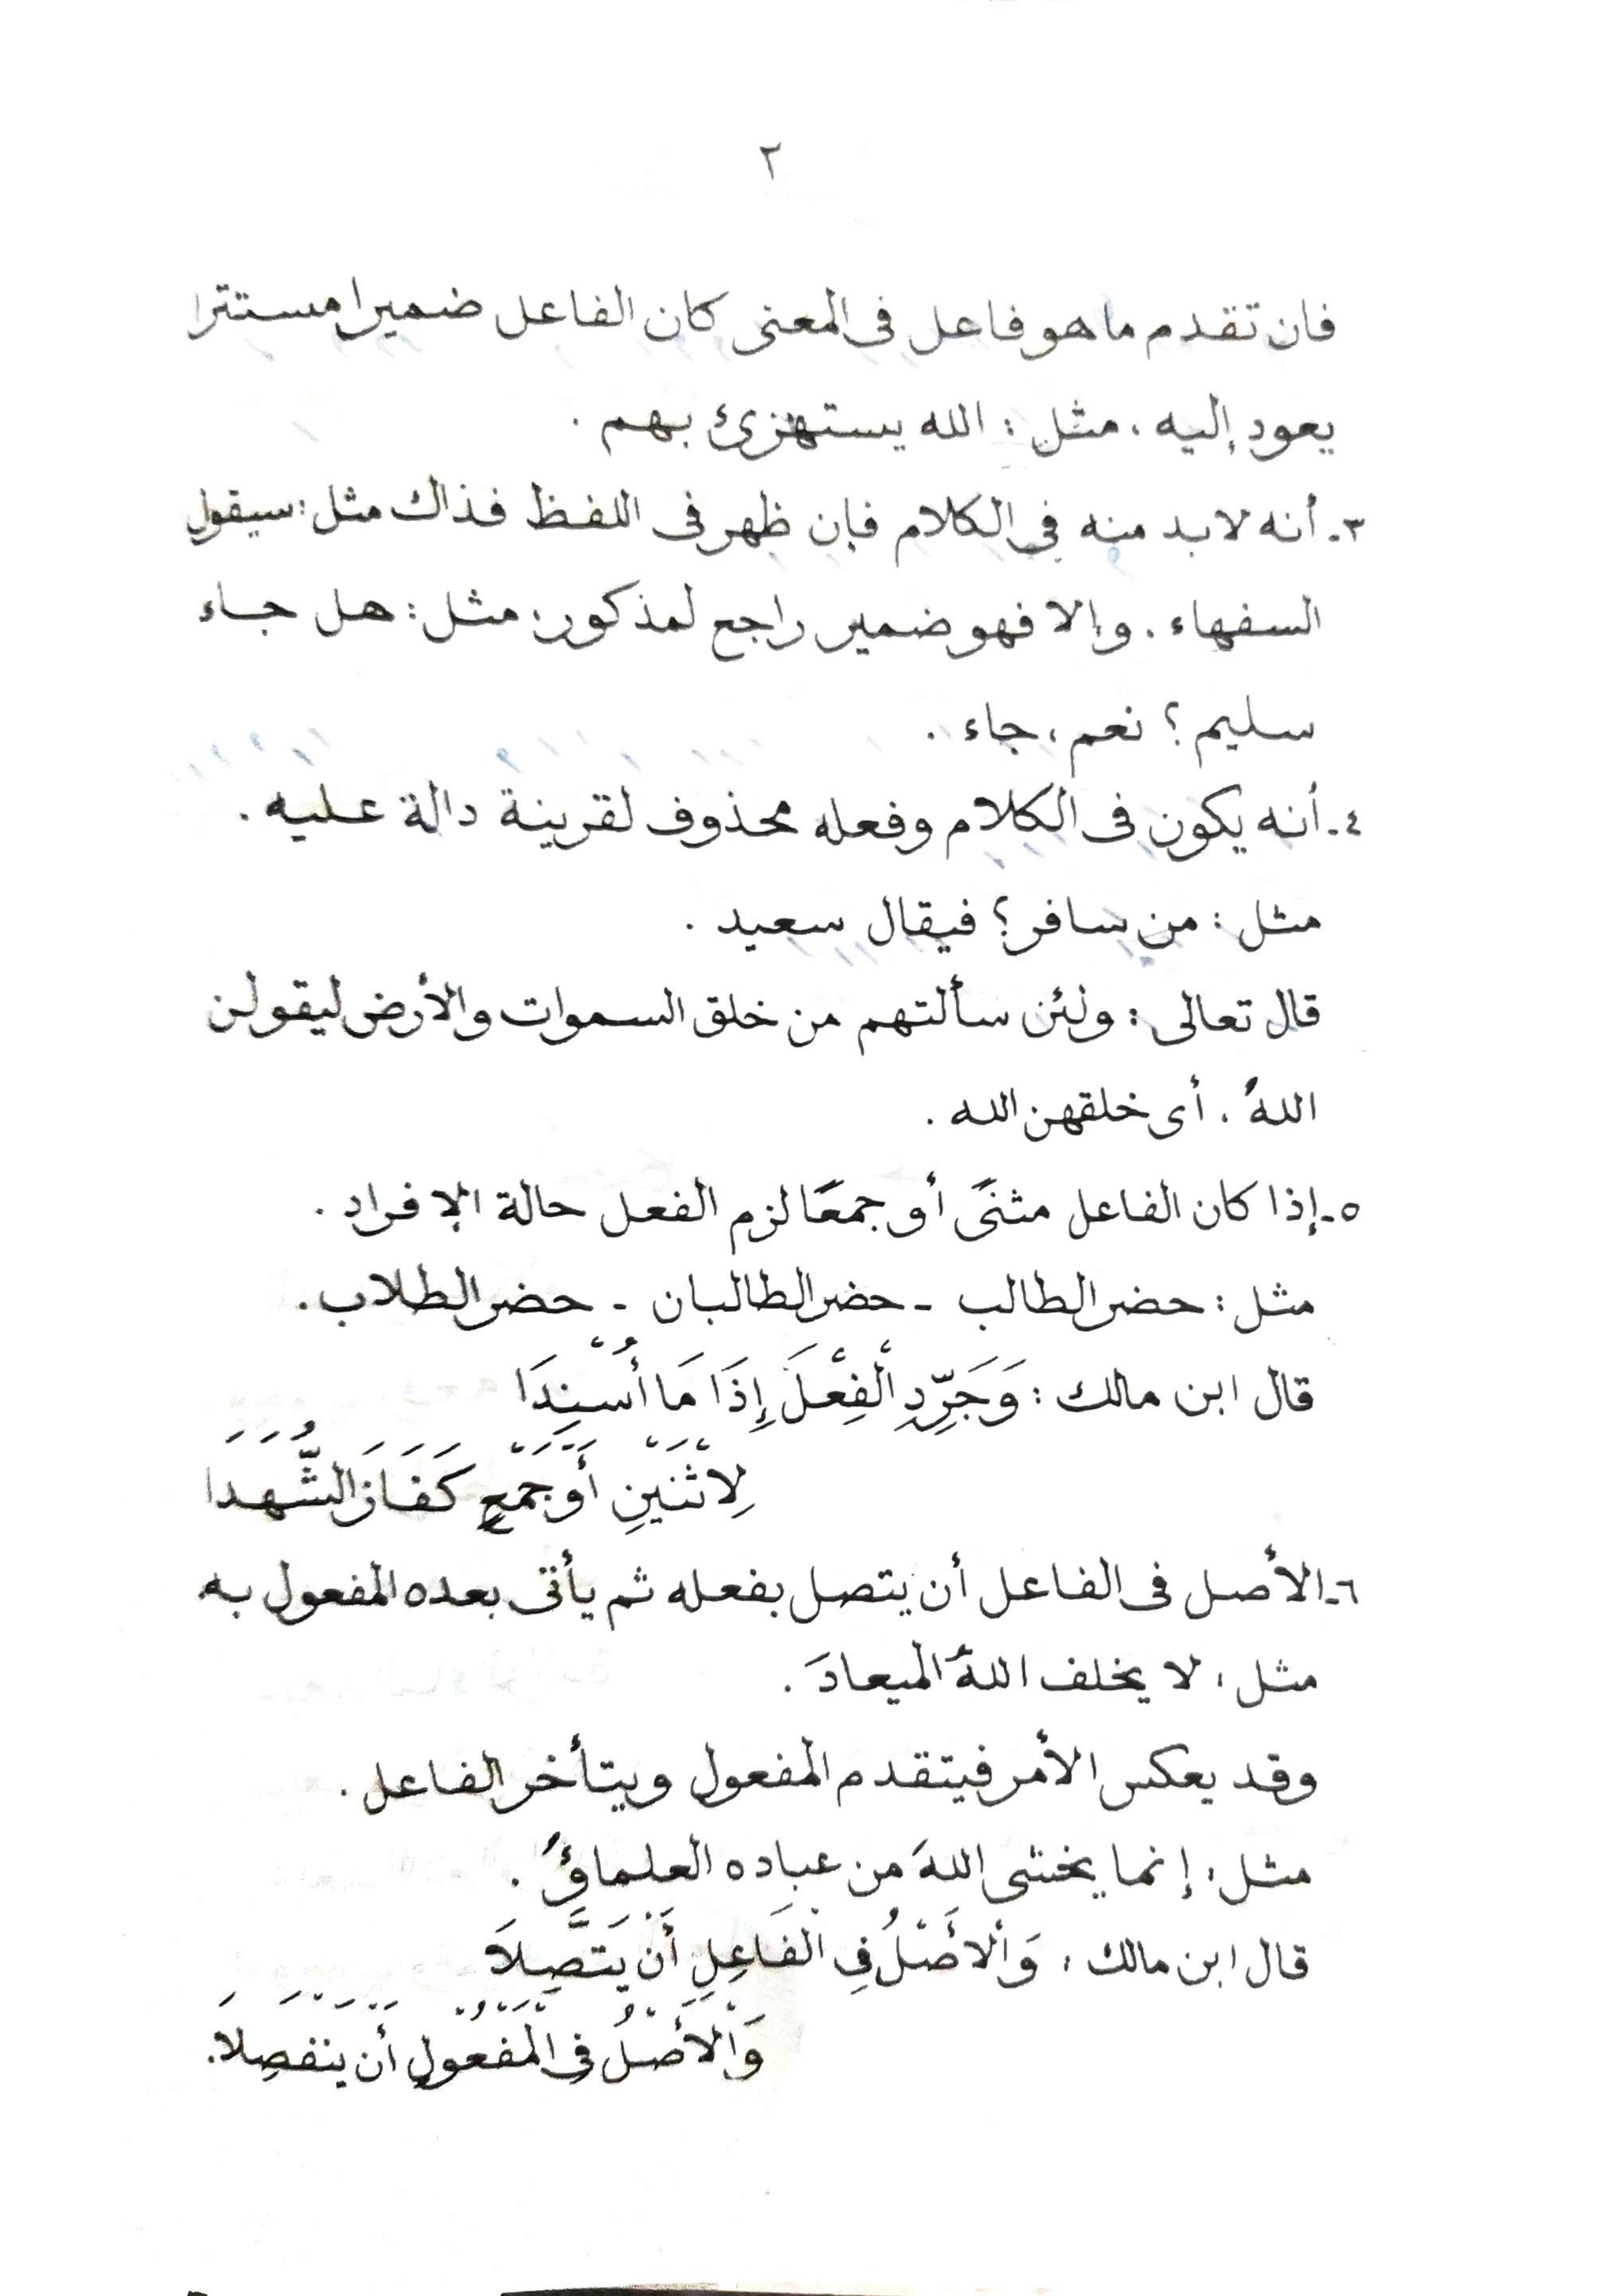 ٢
فان تقدم ما هو فاعل فى المعنى كان الفاعل ضميرا مستترا
يعود إليه، مثل: الله يستهزئ بهم.
٣- أنه لابد منه فى الكلام فإن ظهر فى اللفظ فذاك مثل: سيقول
السفهاء. وإلا فهو ضمير راجع لمذكور: مثل: هل جاء
سليم؟ نعم، جاء.
٤- أنه يكون فى الكلام وفعله محذوف لقرينة دالة عليه.
مثل: من سافر؟ فيقال سعيد.
قال تعالى: ولئن سألتهم من خلق السموات والأرض ليقولن
اللهُ. أى خلقهن الله.
٥- إذا كان الفاعل مثنًى أو جمعًا لزم الفعل حالة الإفراد.
مثل: حضر الطالب - حضر الطالبان - حضر الطلاب.
قال ابن مالك: وَجَرِّدِ الْفِعْلَ إِذَا مَا أُسْنِدَا
لِاثْنَيْنِ أَوْ جَمْعٍ كَفَازَ الشُّهَدَا
٦- الأصل فى الفاعل أن يتصل بفعله ثم يأتى بعده المفعول به
مثل: لا يخلف اللهُ الميعادَ.
وقد يعكس الأمر فيتقدم المفعول ويتأخر الفاعل.
مثل: إنما يخشى اللهَ من عباده العلماؤُ.
قال ابن مالك: وَالْأَصْلُ فِي الْفَاعِلِ أَنْ يَتَّصِلَا
وَالْأَصْلُ فِى الْمَفْعُولِ أَنْ يَنْفَصِلَا.